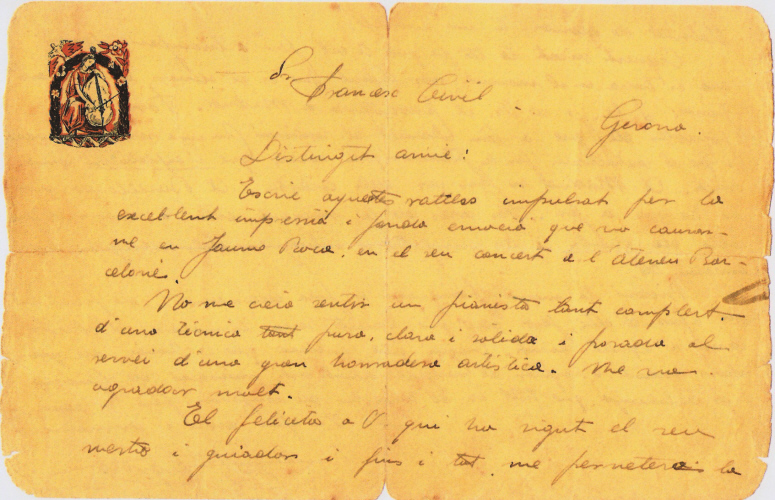 Sr Francesc Civil
Gerona.
Distingit amic!
Escric aquestes ratlles impulsat per la
excel·lent impresió i fonda emoció que va causar-
me en Jaume Roca, en el seu concert a l'Ateneu Bar-
celonés.
No me creia sentir un pianista tant complert.
d'una tècnica tant pura, clara i sólida i posada al
servei d'una gran honradesa artística. Me va
agradar molt.
El felicito a V. qui ha sigut el seu
mestre i guiador i fins i tot me permeteréis la